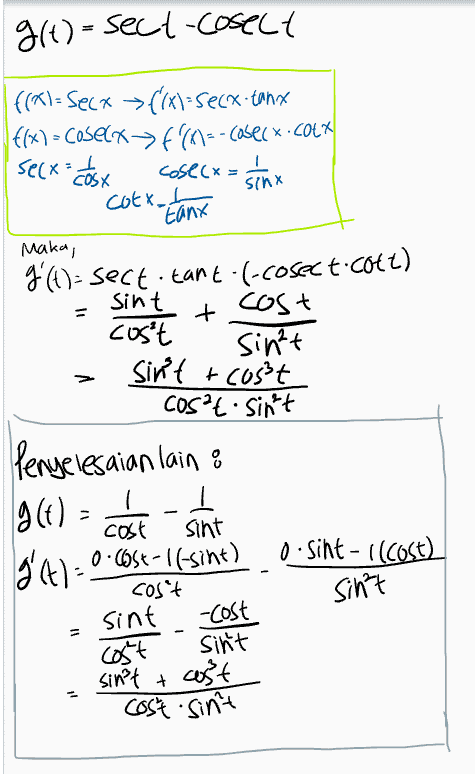 g(t) = sec t - cosec t
f(x) = sec x → f'(x) = sec x · tan x
f(x) = cosec x → f'(x) = - cosec x · cot x
sec x = 1/cos x    cosec x = 1/sin x
cot x = 1/tan x
Maka,
g'(t) = sec t · tan t · (- cosec t · cot t)
= sin t/cos²t + cos t/sin²t
= (sin³t + cos³t)/(cos²t · sin²t)
Penyelesaian lain :
g(t) = 1/cos t - 1/sin t
g'(t) = (0 · cos t - 1(-sin t))/cos²t - (0 · sin t - 1(cos t))/sin²t
= sin t/cos²t - (-cos t)/sin²t
= (sin³t + cos³t)/(cos²t · sin²t)